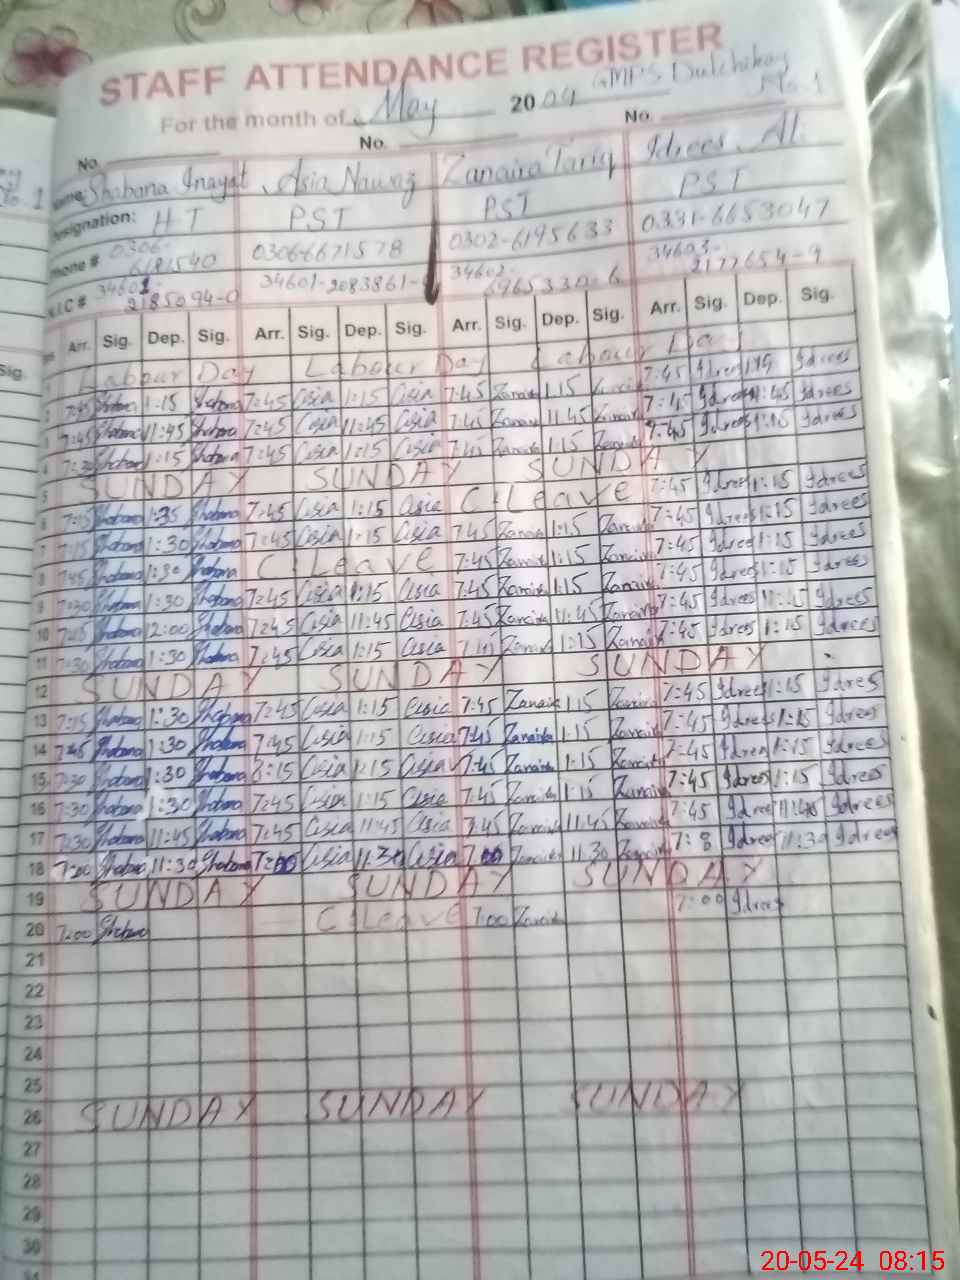 STAFF ATTENDANCE REGISTER
For the month of May 2004 GMPS Dulchikay No. 1
No. No. No.
Name: Shabana Inayat Asia Nawaz Zanaira Tariq Idrees Ali
Designation: HT PST PST PST
Phone # 0306- 0306-6671578 0302-6195633 0331-6653047
N.I.C # 34601- 2185094-0 34601-2083861- 34602- 34603- 2177654-9
Arr. Sig. Dep. Sig. Arr. Sig. Dep. Sig. Arr. Sig. Dep. Sig. Arr. Sig. Dep. Sig.
Labour Day Labour Day Labour Day
2 7:45 Shabana 1:15 Shabana 7:45 Asia 1:15 Asia 7:45 Zanaira 1:15 7:45 Idrees 1:15 Idrees
3 7:45 Shabana 11:45 Shabana 7:45 Asia 11:45 Asia 7:45 Zanaira 11:45 Zanaira 7:45 Idrees 11:45 Idrees
4 7:30 Shabana 1:15 Shabana 7:45 Asia 1:15 Asia 7:45 Zanaira 1:15 Zanaira 7:45 Idrees 1:15 Idrees
5 SUNDAY SUNDAY SUNDAY
6 7:15 Shabana 1:35 Shabana 7:45 Asia 1:15 Asia C.Leave 7:45 Idrees 1:15 Idrees
7 7:15 Shabana 1:30 Shabana 7:45 Asia 1:15 Asia 7:45 Zanaira 1:15 Zanaira 7:45 Idrees 1:15 Idrees
8 7:45 Shabana 1:30 Shabana C.Leave 7:45 Zanaira 1:15 Zanaira 7:45 Idrees 1:15 Idrees
9 7:30 Shabana 1:30 Shabana 7:45 Asia 1:15 Asia 7:45 Zanaira 1:15 Zanaira 7:45 Idrees 1:15 Idrees
10 7:15 Shabana 12:00 Shabana 7:45 Asia 11:45 Asia 7:45 Zanaira 11:45 Zanaira 7:45 Idrees 11:45 Idrees
11 7:30 Shabana 1:30 Shabana 7:45 Asia 1:15 Asia 7:45 Zanaira 1:15 Zanaira 7:45 Idrees 1:15 Idrees
12 SUNDAY SUNDAY SUNDAY
13 7:15 Shabana 1:30 Shabana 7:45 Asia 1:15 Asia 7:45 Zanaira 1:15 Zanaira 7:45 Idrees 1:15 Idrees
14 7:45 Shabana 1:30 Shabana 7:45 Asia 1:15 Asia 7:45 Zanaira 1:15 Zanaira 7:45 Idrees 1:15 Idrees
15 7:30 Shabana 1:30 Shabana 8:15 Asia 1:15 Asia 7:45 Zanaira 1:15 Zanaira 7:45 Idrees 1:15 Idrees
16 7:30 Shabana 1:30 Shabana 7:45 Asia 1:15 Asia 7:45 Zanaira 1:15 Zanaira 7:45 Idrees 1:15 Idrees
17 7:30 Shabana 11:45 Shabana 7:45 Asia 11:45 Asia 7:45 Zanaira 11:45 Zanaira 7:45 Idrees 11:45 Idrees
18 7:00 Shabana 11:30 Shabana 7:00 Asia 11:30 Asia 7:00 Zanaira 11:30 Zanaira 7:8 Idrees 11:30 Idrees
19 SUNDAY SUNDAY SUNDAY
20 7:00 Shabana C.Leave 7:00 Zanaira 7:00 Idrees
21
22
23
24
25
26 SUNDAY SUNDAY SUNDAY
27
28
29
30
31
20-05-24 08:15